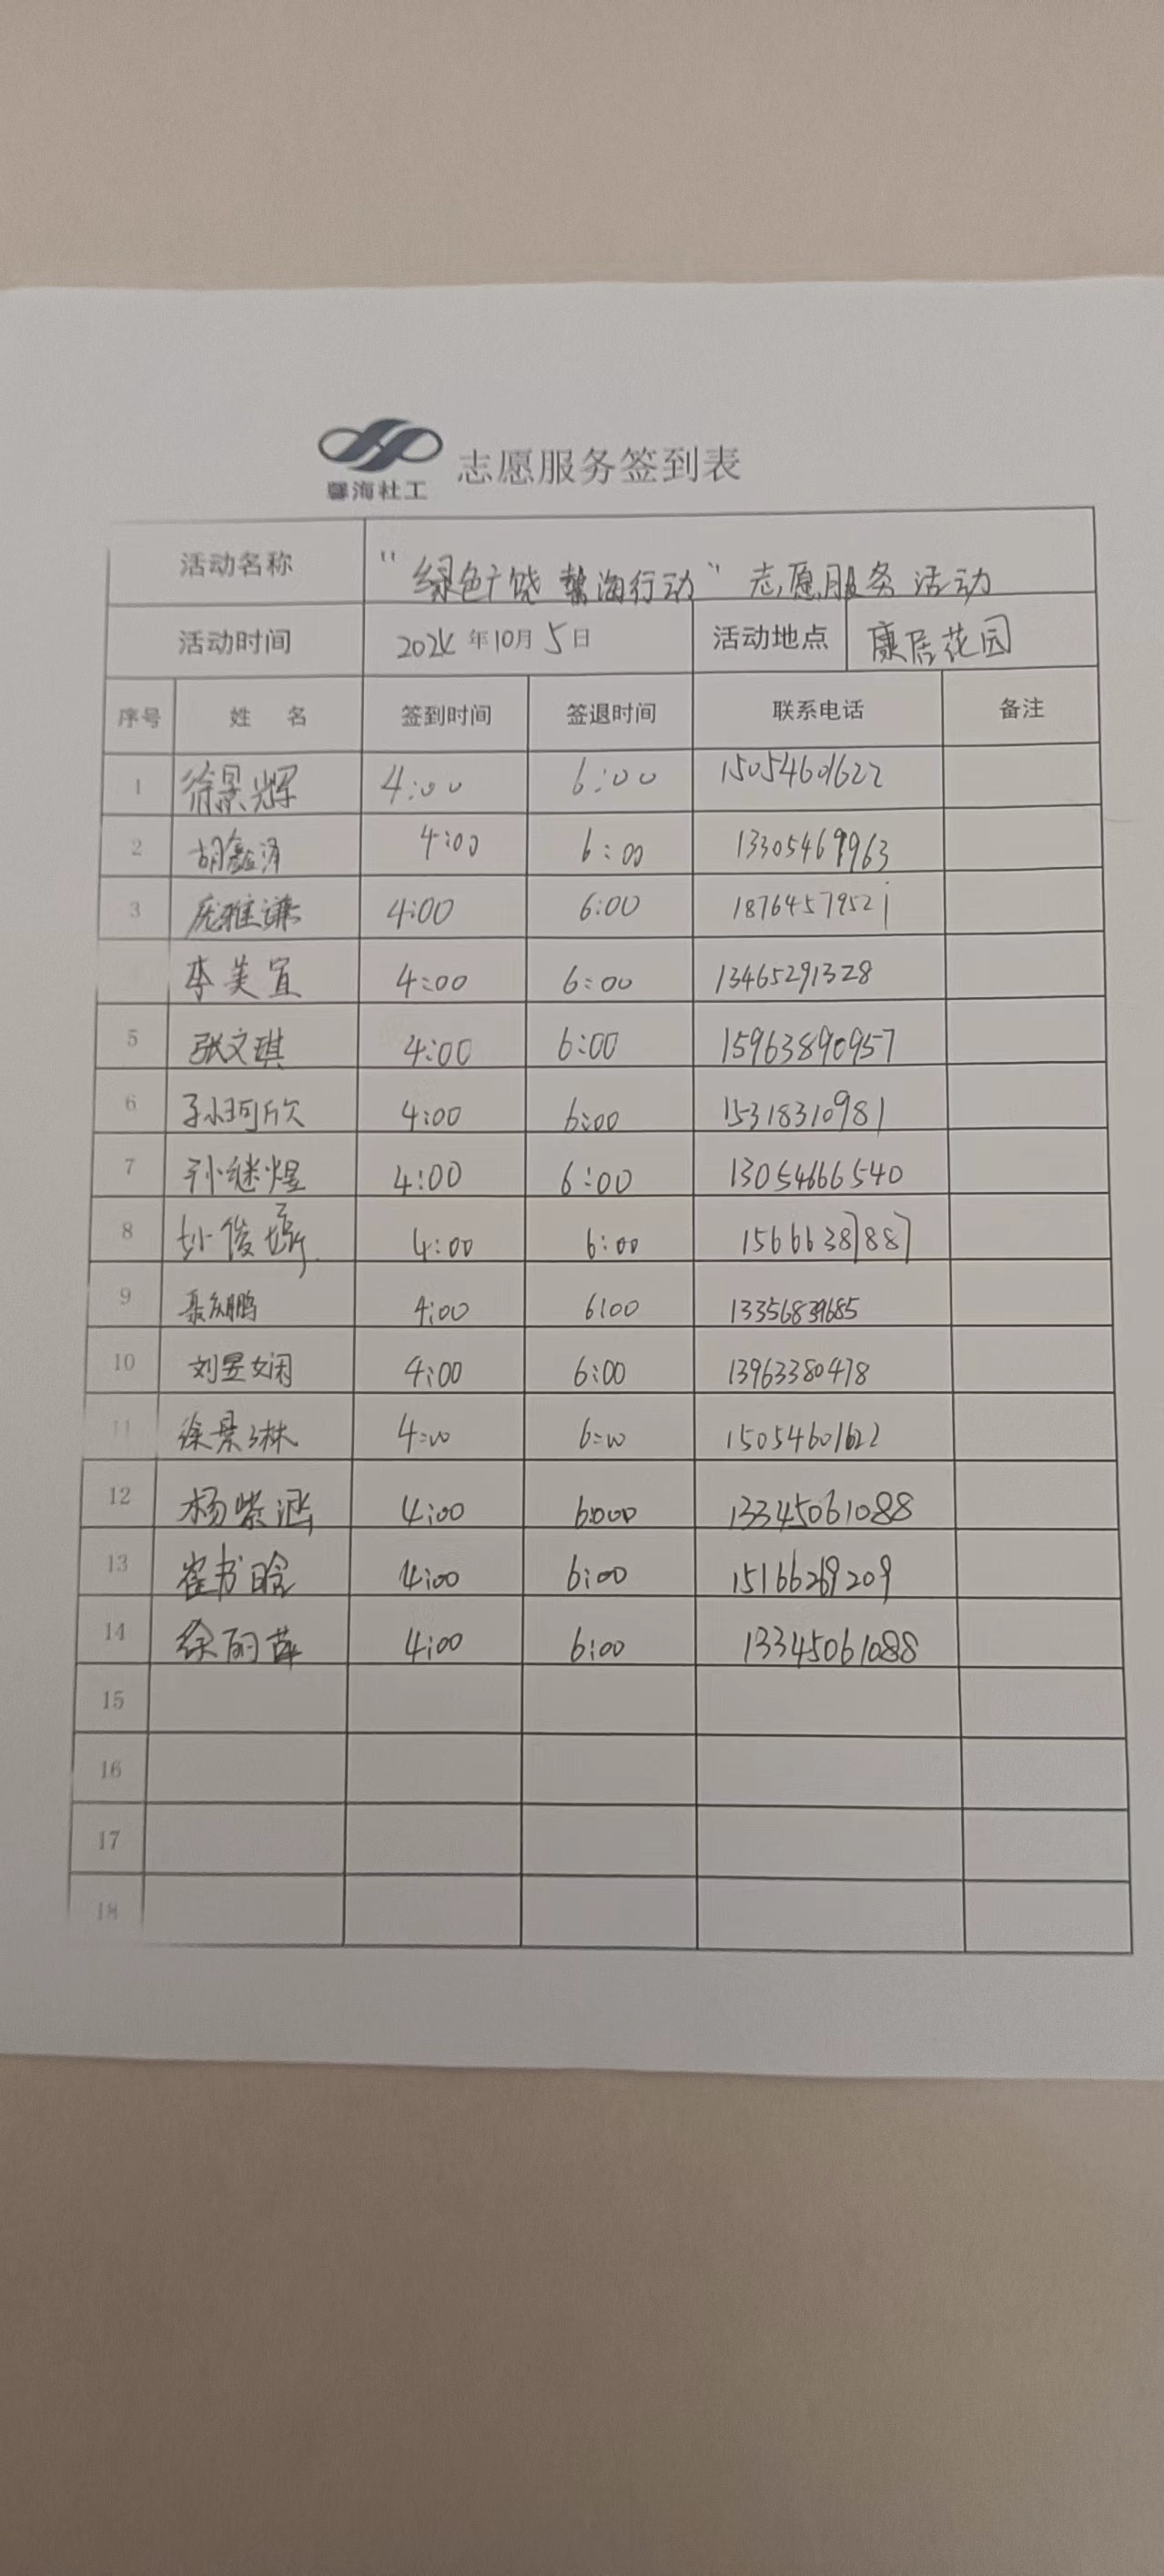 馨海社工 志愿服务签到表
活动名称 “绿色广饶 馨海行动” 志愿服务活动
活动时间 2024年10月5日 活动地点 康居花园
序号 姓 名 签到时间 签退时间 联系电话 备注
1 徐景辉 4:00 6:00 15054601622
2 胡鑫泽 4:00 6:00 13305469963
3 庞雅谦 4:00 6:00 18764579521
李美宣 4:00 6:00 13465291328
5 张文琪 4:00 6:00 15963890957
6 孙珂欣 4:00 6:00 15318310981
7 孙继煜 4:00 6:00 13054666540
8 俊 4:00 6:00 15666387887
9 鹏 4:00 6:00 13356839685
10 刘昱娴 4:00 6:00 13963380478
11 徐景琳 4:00 6:00 15054601622
12 杨紫涵 4:00 6:000 13345061088
13 崔书晗 4:00 6:00 15166269209
14 徐丽萍 4:00 6:00 13345061088
15
16
17
18